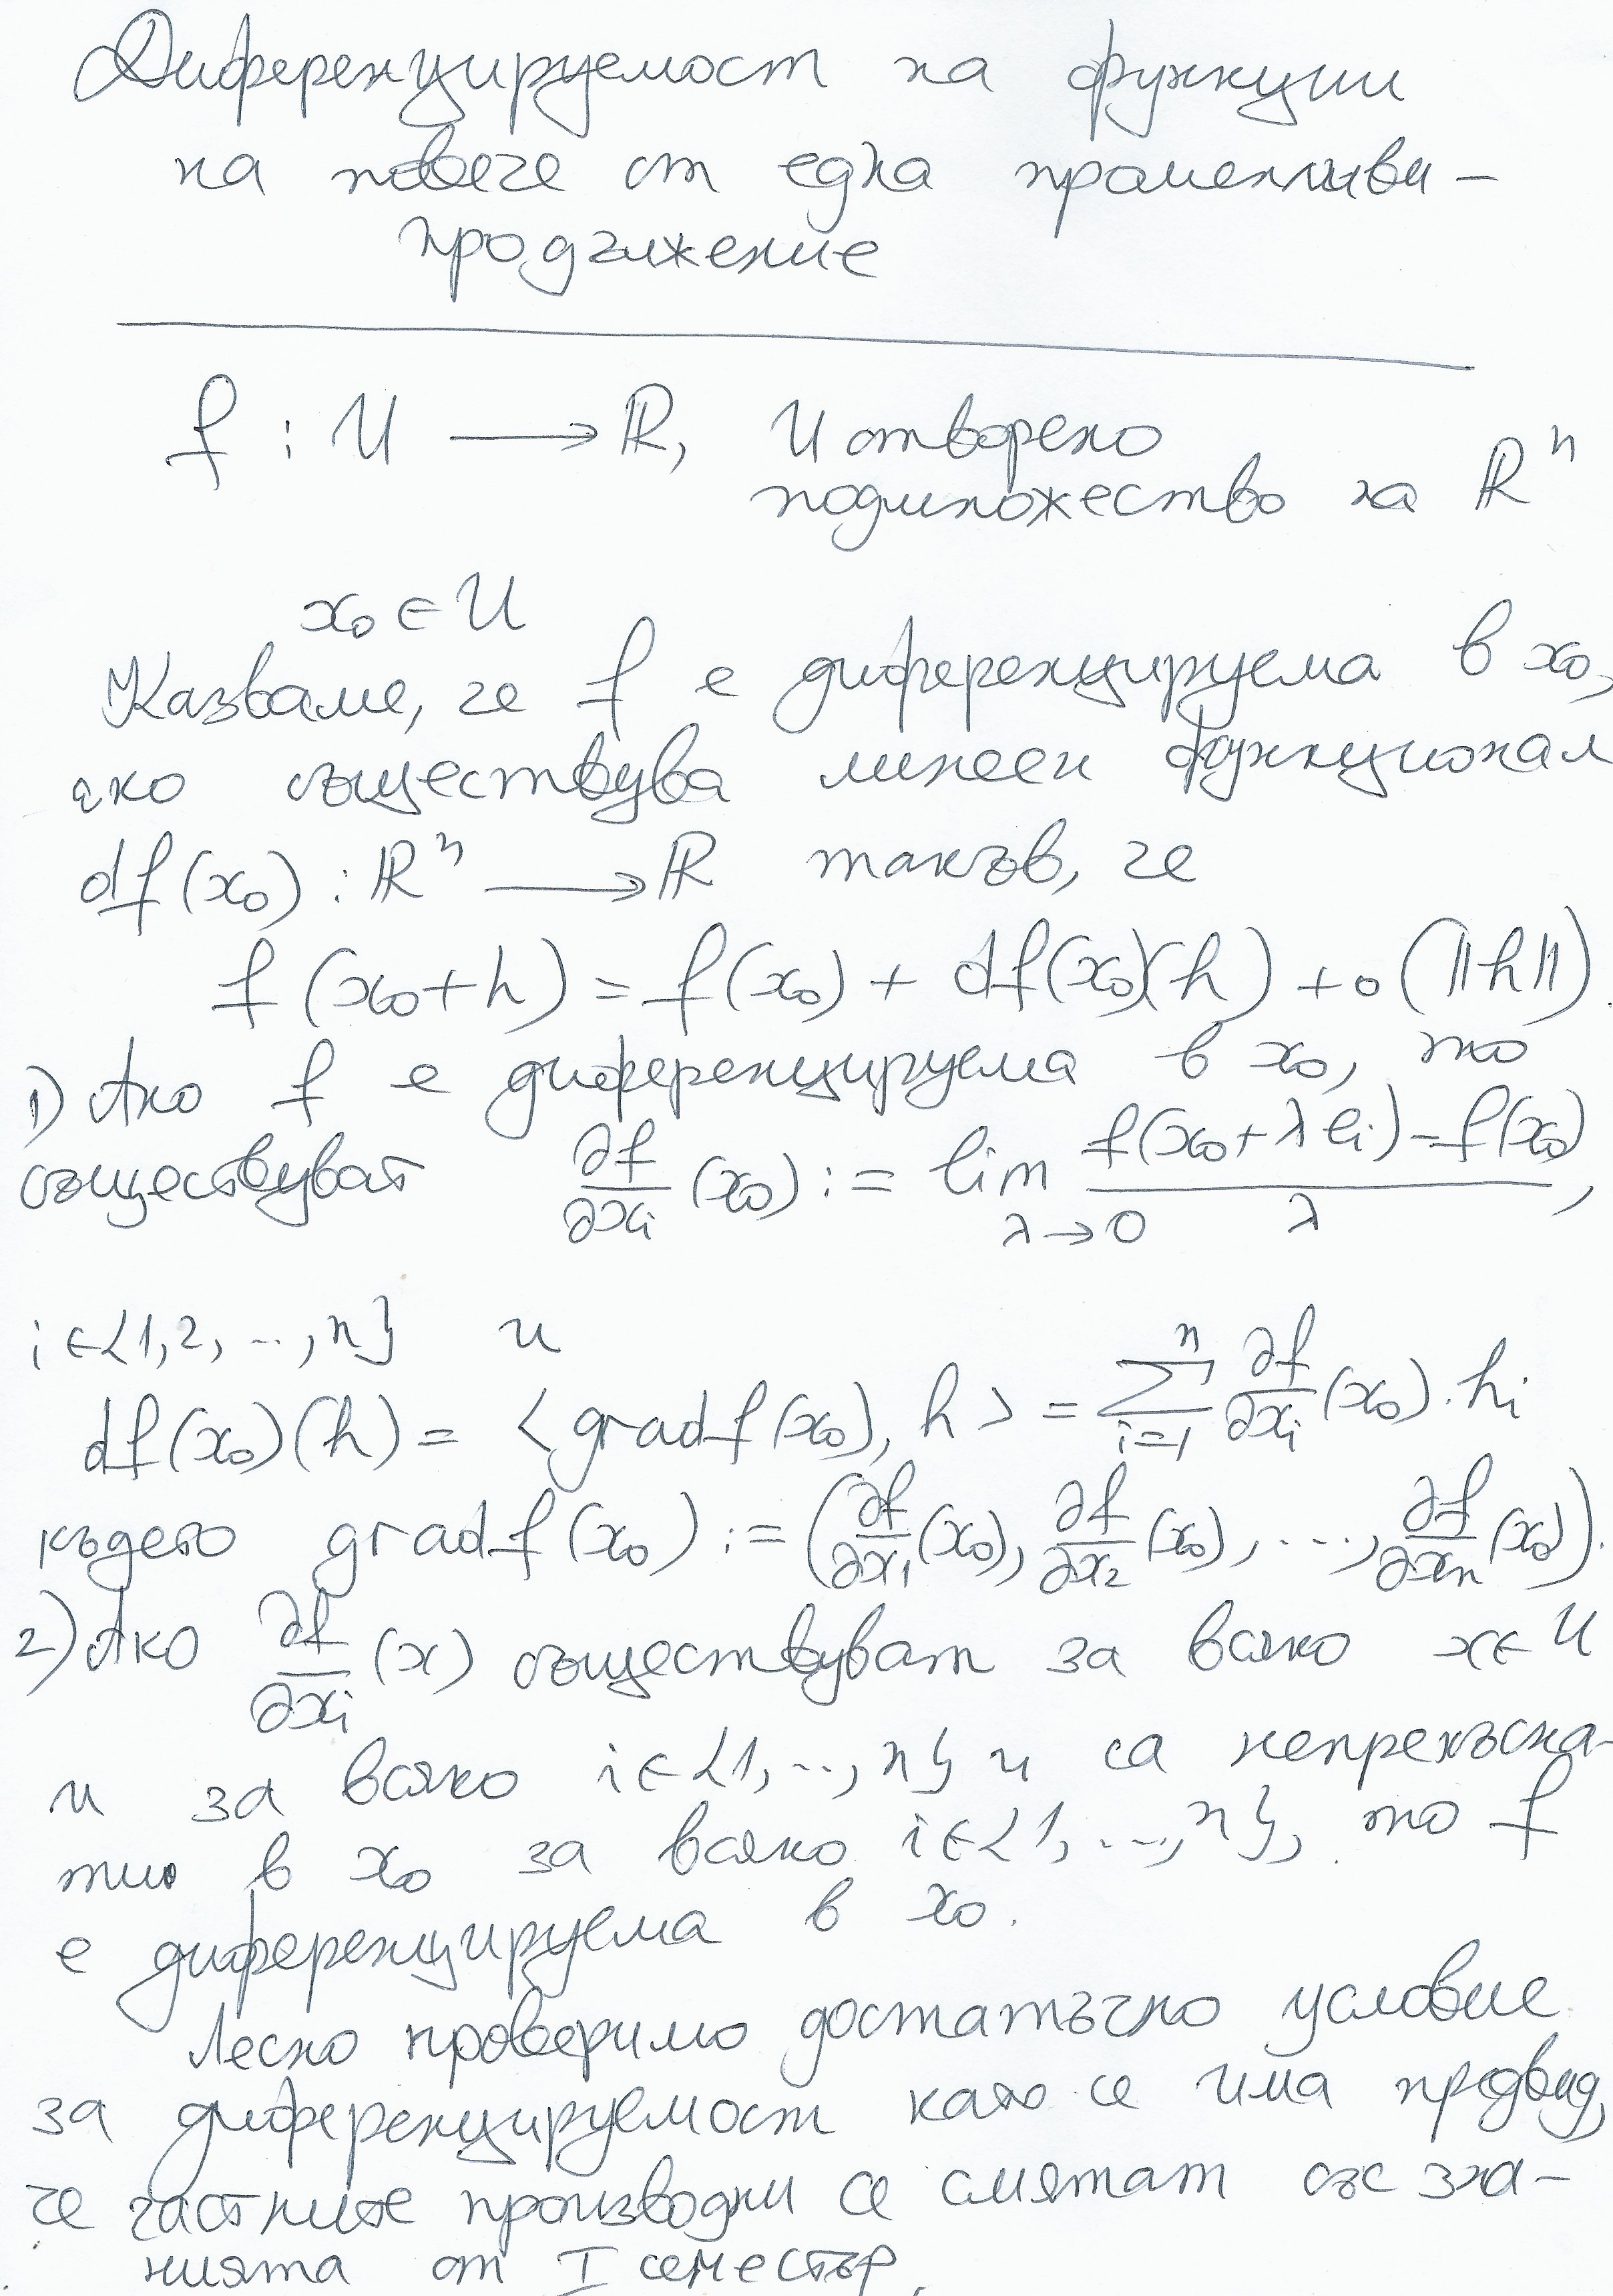 Диференцируемост на функции
на повече от една променливи –
продължение
f : U ⟶ ℝ, U отворено
подмножество на ℝⁿ
x₀ ∈ U
Казваме, че f е диференцируема в x₀,
ако съществува линеен функционал
df(x₀) : ℝⁿ ⟶ ℝ такъв, че
f(x₀+h) = f(x₀) + df(x₀)(h) + o(‖h‖).
1) Ако f е диференцируема в x₀, то
съществуват ∂f/∂xᵢ (x₀) := lim_{λ→0} (f(x₀+λeᵢ) − f(x₀))/λ,
i ∈ {1,2,...,n} и
df(x₀)(h) = <grad f(x₀), h> = ∑_{i=1}^{n} ∂f/∂xᵢ (x₀).hᵢ
където grad f(x₀) := (∂f/∂x₁ (x₀), ∂f/∂x₂ (x₀), ..., ∂f/∂xₙ (x₀)).
2) Ако ∂f/∂xᵢ (x) съществуват за всяко x ∈ U
и за всяко i ∈ {1,..,n} и са непрекъсна-
ти в x₀ за всяко i ∈ {1,...,n}, то f
е диференцируема в x₀.
Лесно проверимо достатъчно условие
за диференцируемост като се има предвид,
че частните производни се смятат със зна-
нията от I семестър.